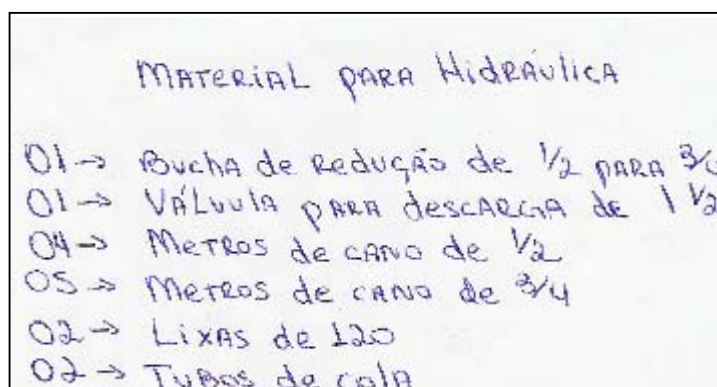 Material para Hidráulica
01→ Bucha de Redução de 1/2 para 3/4
01→ Válvula para descarga de 1 1/2
04→ Metros de cano de 1/2
05→ Metros de cano de 3/4
02→ Lixas de 120
02→ Tubos de cola